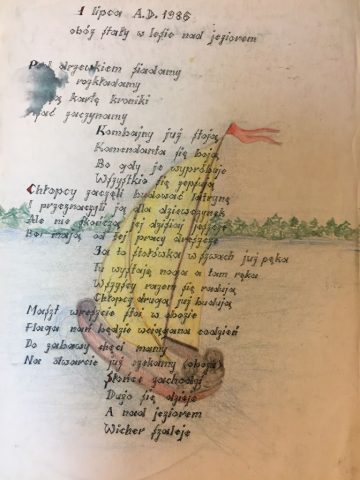 1 lipca A.D. 1986
obóz stały w lesie nad jeziorem
Pod drzewkiem siadamy
rozkładamy
kartę kroniki
zaczynamy
Kombajny już stoją
Komendanta się boją
Bo gdy je wypróbuje
Wszystkie się zepsują
Chłopcy zaczęli budować latrynę
I przeznaczyli ją dla dziewczynek
Ale nie skończą jej dzisiaj jeszcze
Bo mają od jej pracy dreszcze
Za to stołówka w szwach już pęka
Tu wystają noga a tam ręka
Wszyscy razem się radują
Chłopcy drugą już budują
Maszt wreszcie stoi w obozie
Flaga nań będzie wciągana codzień
Do zabawy chęci mamy
Na otwarcie już czekamy (obozu)
Słońce zachodzi
Dużo się dzieje
A nad jeziorem
Wicher szaleje